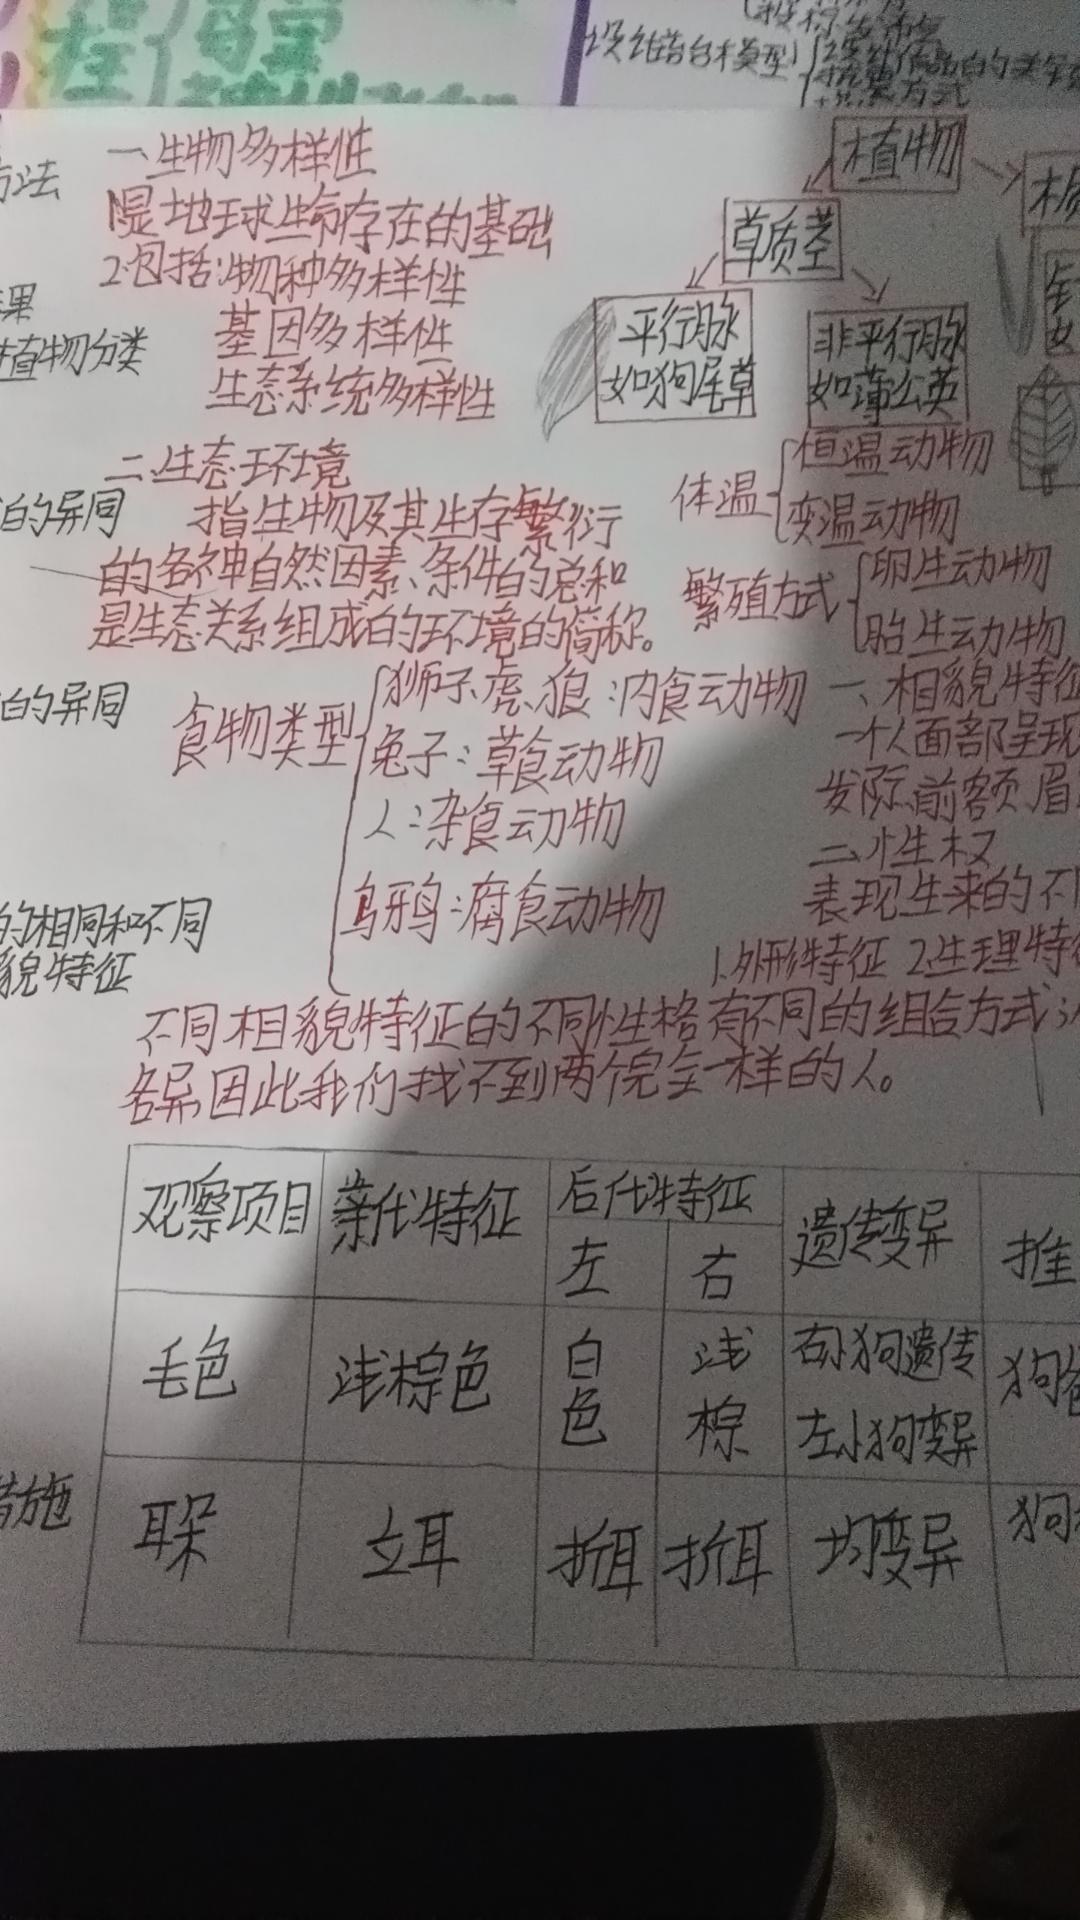 程
设
模型
方式
植物
木质
草质茎
平行脉
如狗尾草
非平行脉
如蒲公英
方法
果
植物分类
的异同
的异同
的相同和不同
貌特征
措施
一、生物多样性
1.是地球生命存在的基础
2.包括:物种多样性
基因多样性
生态系统多样性
二、生态环境
指生物及其生存繁衍
的各种自然因素、条件的总和
是生态关系组成的环境的简称。
体温
恒温动物
变温动物
繁殖方式
卵生动物
胎生动物
食物类型
狮子、虎、狼:肉食动物
兔子:草食动物
人:杂食动物
乌鸦:腐食动物
一、相貌特征
一个人面部呈现
发际、前额、眉
二、性状
表现出来的不
1.外形特征 2.生理特征
不同相貌特征的不同性格有不同的组合方式
各异,因此我们找不到两个完全一样的人。
观察项目 亲代特征 后代特征 遗传变异 推
左 右
毛色 浅棕色 白色 浅棕 右小狗遗传 狗爸
左小狗变异
耳朵 立耳 折耳 折耳 均变异 狗